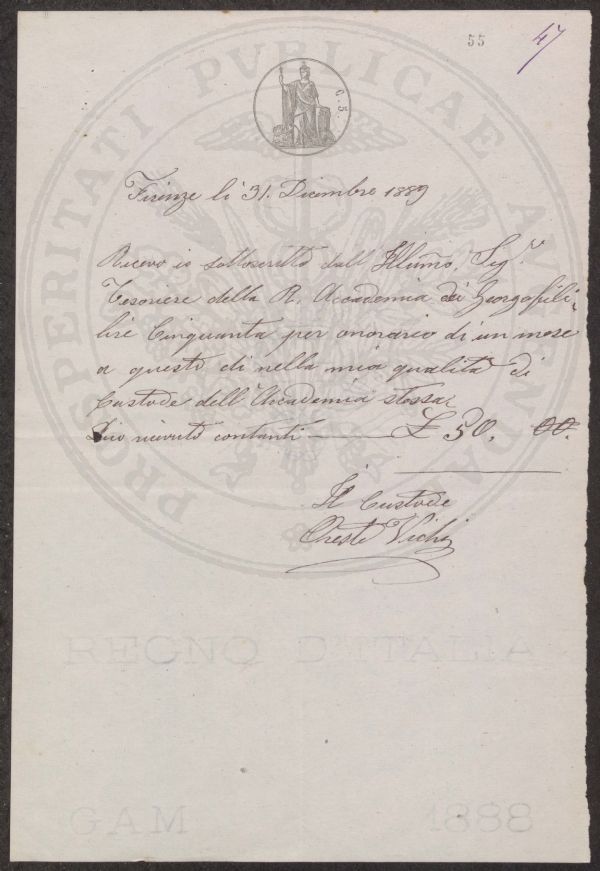 55
47
PROSPERITATI PVBLICAE AVGENDAE
C. 5.
Firenze li 31. Dicembre 1889
Ricevo io sottoscritto dall' Illumo. Sigr.
Tesoriere della R. Accademia dei Georgofili
lire Cinquanta per onorario di un mese
a questo dì nella mia qualità di
Custode dell' Accademia stessa
Dico ricevuto contanti — £ 50. 00.
Il Custode
Oreste Vichi
REGNO D'ITALIA
GAM 1888